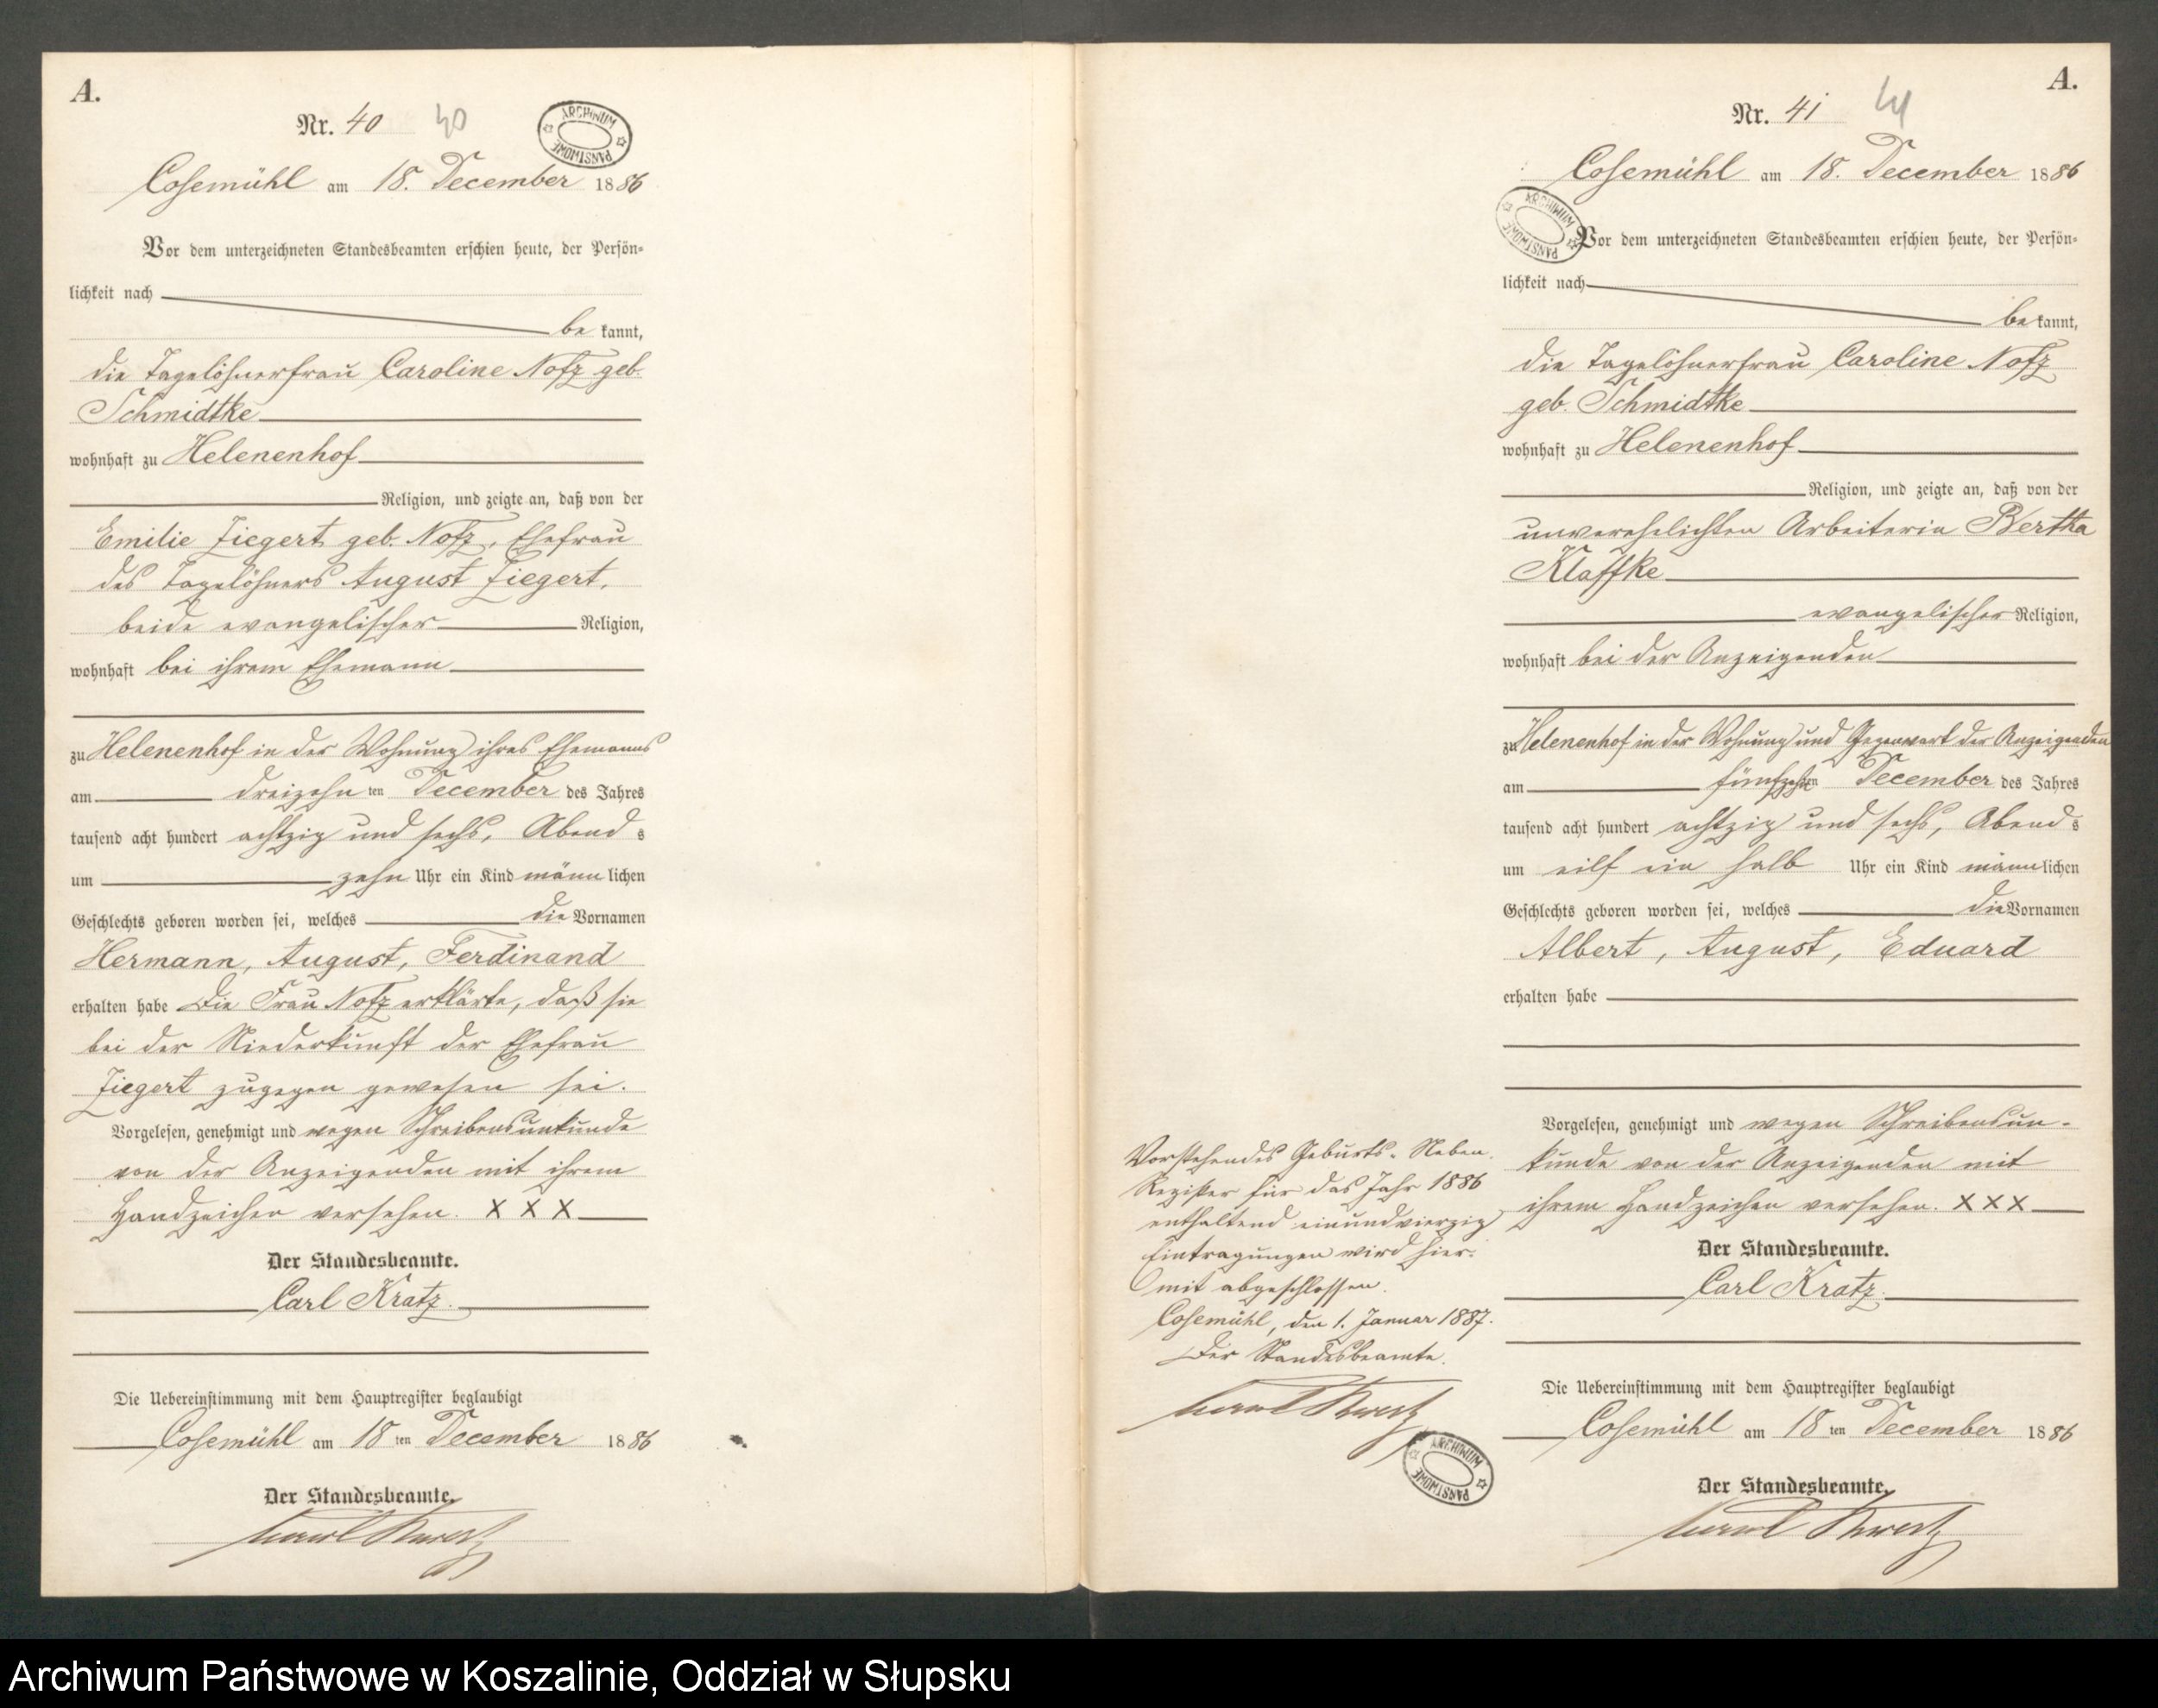 A.
Nr. 40 40
ARCHIWUM PAŃSTWOWE
Cosemühl am 18. December 1886
Vor dem unterzeichneten Standesbeamten erschien heute, der Persön-
lichkeit nach
be kannt,
die Tagelöhnerfrau Caroline Notz geb.
Schmidtke
wohnhaft zu Helenenhof
Religion, und zeigte an, daß von der
Emilie Ziegert geb. Notz, Ehefrau
des Tagelöhners August Ziegert,
beide evangelischer Religion,
wohnhaft bei ihrem Ehemann
zu Helenenhof in der Wohnung ihres Ehemanns
am dreizehn ten December des Jahres
tausend acht hundert achtzig und sechs, Abend s
um zehn Uhr ein Kind männ lichen
Geschlechts geboren worden sei, welches die Vornamen
Hermann, August, Ferdinand
erhalten habe Die Frau Notz erklärte, daß sie
bei der Niederkunft der Ehefrau
Ziegert zugegen gewesen sei.
Vorgelesen, genehmigt und wegen Schreibensunkunde
von der Anzeigenden mit ihrem
Handzeichen versehen. X X X
Der Standesbeamte.
Carl Kratz.
Die Uebereinstimmung mit dem Hauptregister beglaubigt
Cosemühl am 18 ten December 1886
Der Standesbeamte.
Carl Kratz
A.
Nr. 41 41
Cosemühl am 18. December 1886
ARCHIWUM PAŃSTWOWE
Vor dem unterzeichneten Standesbeamten erschien heute, der Persön-
lichkeit nach
be kannt,
die Tagelöhnerfrau Caroline Notz
geb. Schmidtke
wohnhaft zu Helenenhof
Religion, und zeigte an, daß von der
unverehelichten Arbeiterin Bertha
Klaffke
evangelischer Religion,
wohnhaft bei der Anzeigenden
zu Helenenhof in der Wohnung und Gegenwart der Anzeigenden
am fünfzehn ten December des Jahres
tausend acht hundert achtzig und sechs, Abend s
um eilf ein halb Uhr ein Kind männ lichen
Geschlechts geboren worden sei, welches die Vornamen
Albert, August, Eduard
erhalten habe
Vorgelesen, genehmigt und wegen Schreibensun-
kunde von der Anzeigenden mit
ihrem Handzeichen versehen. X X X
Der Standesbeamte.
Carl Kratz.
Die Uebereinstimmung mit dem Hauptregister beglaubigt
Cosemühl am 18 ten December 1886
Der Standesbeamte.
Carl Kratz
Vorstehendes Geburts-Neben-
Register für das Jahr 1886
enthaltend einundvierzig
Eintragungen wird hier-
mit abgeschlossen.
Cosemühl, den 1. Januar 1887.
Der Standesbeamte.
Carl Kratz
ARCHIWUM PAŃSTWOWE
Archiwum Państwowe w Koszalinie, Oddział w Słupsku